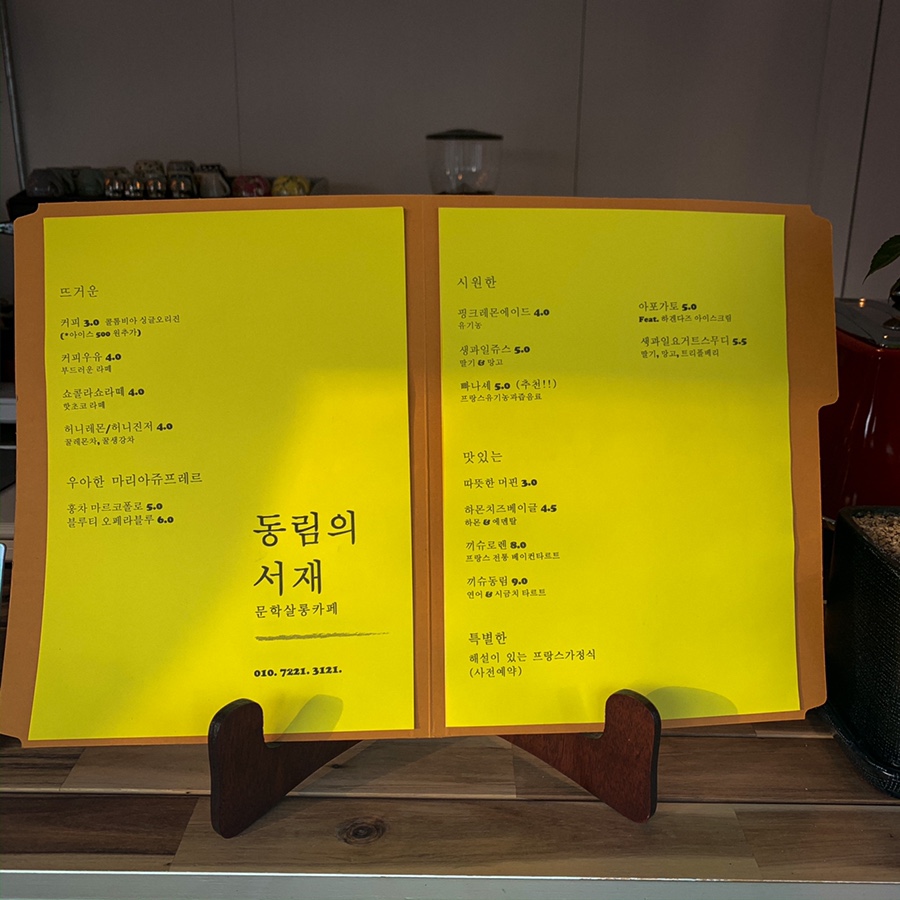 뜨거운
커피 3.0 콜롬비아 싱글오리진
(*아이스 500 원추가)
커피우유 4.0
부드러운 라떼
쇼콜라쇼라떼 4.0
핫초코 라떼
허니레몬/허니진저 4.0
꿀레몬차, 꿀생강차
우아한 마리아쥬프레르
홍차 마르코폴로 5.0
블루티 오페라블루 6.0
동림의
서재
문학살롱카페
010. 7221. 3121.
시원한
핑크레몬에이드 4.0
유기농
생과일쥬스 5.0
딸기 & 망고
빠나세 5.0 (추천!!)
프랑스유기농과즙음료
아포가토 5.0
Feat. 하겐다즈 아이스크림
생과일요거트스무디 5.5
딸기, 망고, 트리플베리
맛있는
따뜻한 머핀 3.0
하몬치즈베이글 4.5
하몬 & 에멘탈
끼슈로렌 8.0
프랑스 전통 베이컨타르트
끼슈동림 9.0
연어 & 시금치 타르트
특별한
해설이 있는 프랑스가정식
(사전예약)